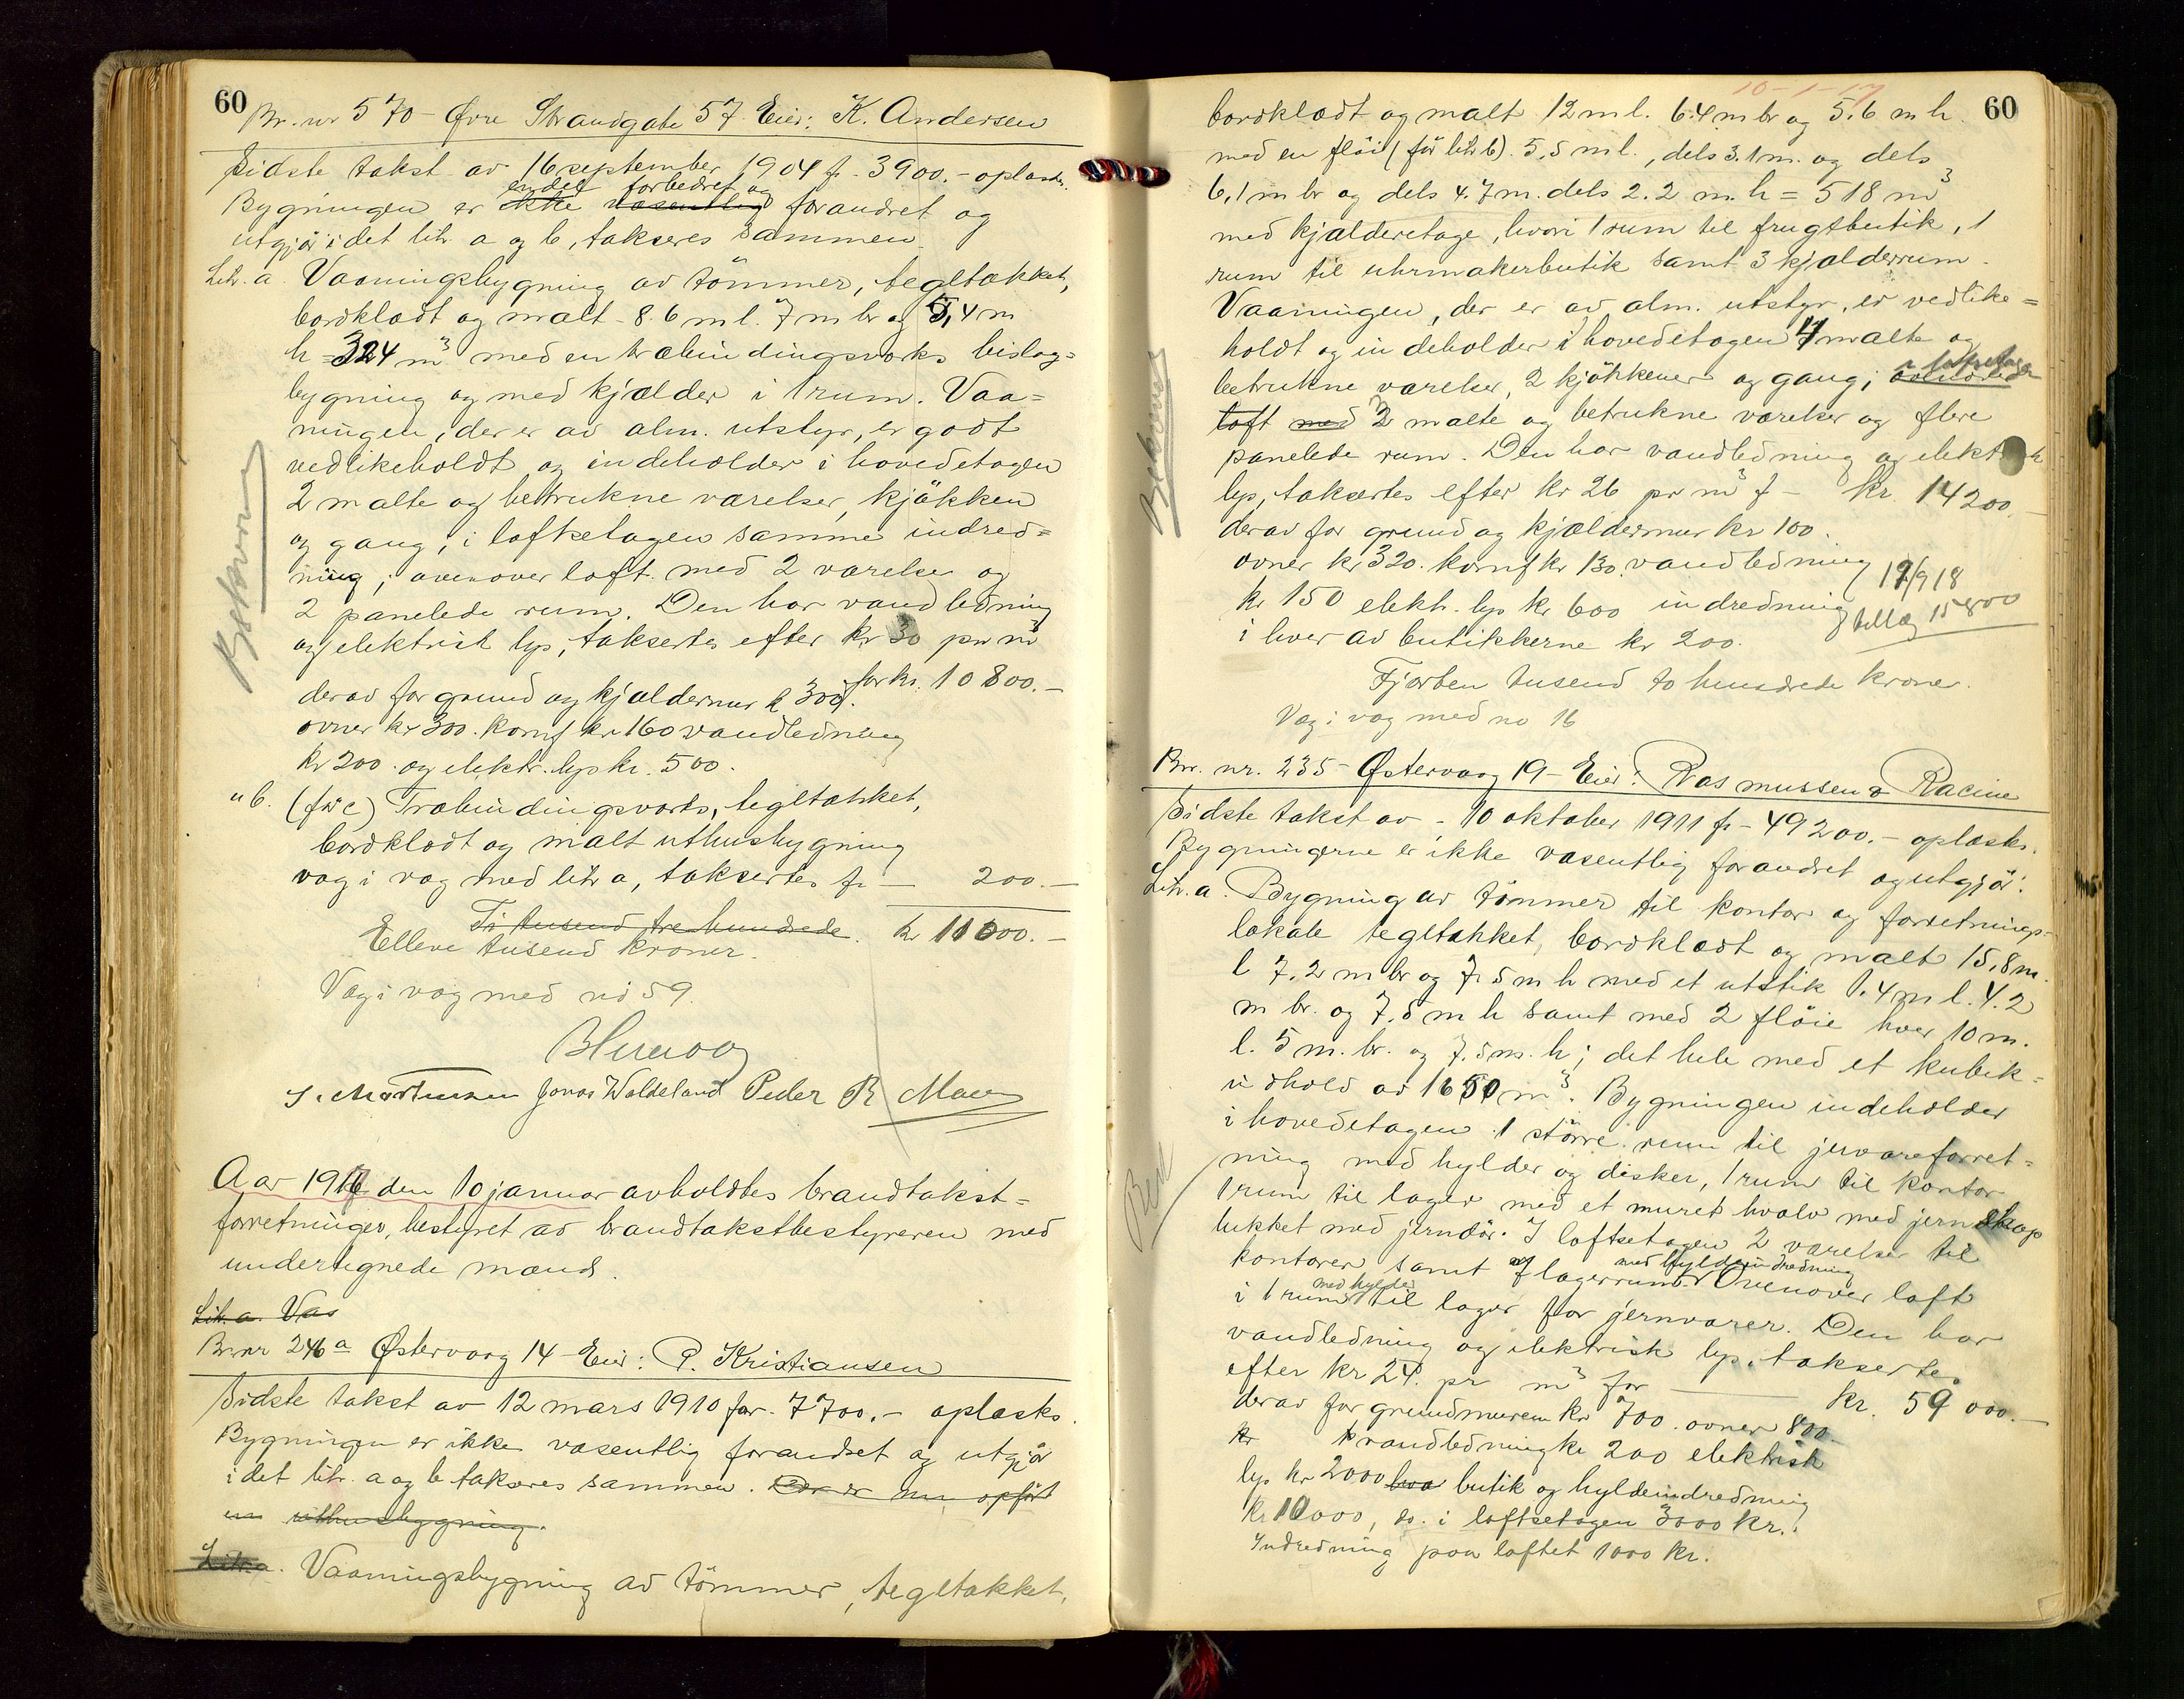 60
Br. nr 570 - Øvre Strandgate 57 Eier: K. Andersen
Sidste takst av 16 september 1904 fr. 3900.- oplæstes.
endel forbedret og
Bygningen er ikke væsentlig forandret og
utgjør i det litr. a og b, takseres sammen
Litr. a. Vaaningsbygning av tömmer, tegltækket,
bordklædt og malt - 8.6 m l. 7 m br og 5,4 m
h = 324 m3 med en træbindingsverks bislag-
bygning og med kjælder i 1 rum. Vaa-
ningen, der er av alm. utstyr, er godt
vedlikeholdt og indeholder i hovedetagen
2 malte og betrukne værelser, kjökken
og gang; i loftsetagen samme indred-
ning; ovenover loft med 2 værelser og
2 panelede rum. Den har vandledning
og elektrisk lys, taksertes efter kr 30 pr m3
for kr. 10800.-
derav for grund og kjældermur k 300.
ovner kr 300. komf kr 160 vandledning
kr 200. og elektr. lys kr. 500.
" b. (för c) Træbindingsverks, tegltækket,
bordklædt og malt uthusbygning
væg i væg med litr a, taksertes fr — 200.-
Ti tusend tre hundrede. kr 11000.-
Elleve tusend kroner.
Væg i væg med no 59.
S. Mortensen Jonas Waldeland Peder R Maeng
Aar 1917 den 10 januar avholdtes brandtakst-
forretninger, bestyret av brandtakstbestyreren med
undertegnede mænd.
Litr. a. Vaa
Br. nr 246 a Østervaag 14 - Eier: P. Kristiansen
Sidste takst av 12 mars 1910 for 7700.- oplæstes.
Bygningen er ikke væsentlig forandret og utgjør
i det litr. a og b takseres sammen. Der er nu opført
en uthusbygning.
Litr. a. Vaaningsbygning av tömmer, tegltækket,
Bjekvern
10-1-17
60
bordklædt og malt 12 m l. 6.4 m br og 5,6 m h.
med en flöi (för litr b). 5,5 m l., dels 3.1 m. og dels
6,1 m br og dels 4.7 m. dels 2.2 m. h = 518 m3
med kjælderetage, hvori 1 rum til frugtbutik, 1
rum til uhrmakerbutik samt 3 kjælderrum.
Vaaningen, der er av alm. utstyr, er vedlike-
holdt og indeholder i hovedetagen 4 malte og
betrukne værelser, 2 kjökkener og gang; i loftsetagen
loft med 2 malte og betrukne værelser og flere
panelede rum. Den har vandledning og elektrisk
lys, taksertes efter kr 26 pr m3 f - kr. 14200.-
derav for grund og kjældermur kr 100.
ovner kr 320. komf kr 130. vandledning
kr 150 elekt. lys kr 600 indredning
i hver av butikkerne kr 200.
17/9 18
tillæg 15800
Fjorten tusend to hundrede kroner.
Væg i væg med no 16
Br. nr. 235 - Østervaag 19 - Eier: Rasmussen & Racine
Sidste takst av - 10 oktober 1911 fr - 49200.- oplæstes.
Bygningerne er ikke væsentlig forandret og utgjør:
Litr. a. Bygning av tömmer til kontor og forretnings-
lokale tegltækket, bordklædt og malt 15,8 m.
l 7.2 m br og 7.5 m h med et utstik 1.4 m l. 4.2
m br. og 7.5 m h samt med 2 flöie hver 10 m.
l. 5 m. br. og 7.5 m. h; det hele med et kubik-
indhold av 1650 m3. Bygningen indeholder
i hovedetagen 1 större rum til jernvareforret-
ning med hylder og disker, 1 rum til kontor
1 rum til lager med et muret hvælv med jernskap
lukket med jerndör. I loftsetagen 2 værelser til
kontorer samt 7 lagerrum med hyldeindredning. Ovenover loft
i 1 rum med hylder til lager for jernvarer. Den har
vandledning og elektrisk lys, taksertes
efter kr 24. pr m3 for — kr. 59000.-
derav for grundmuren kr 700. ovner 800.-
kr vandledning kr 200 elektrisk
lys kr 2000 butik og hyldeindredning
kr 10000, do. i loftsetagen 3000 kr.
Indredning paa loftet 1000 kr.